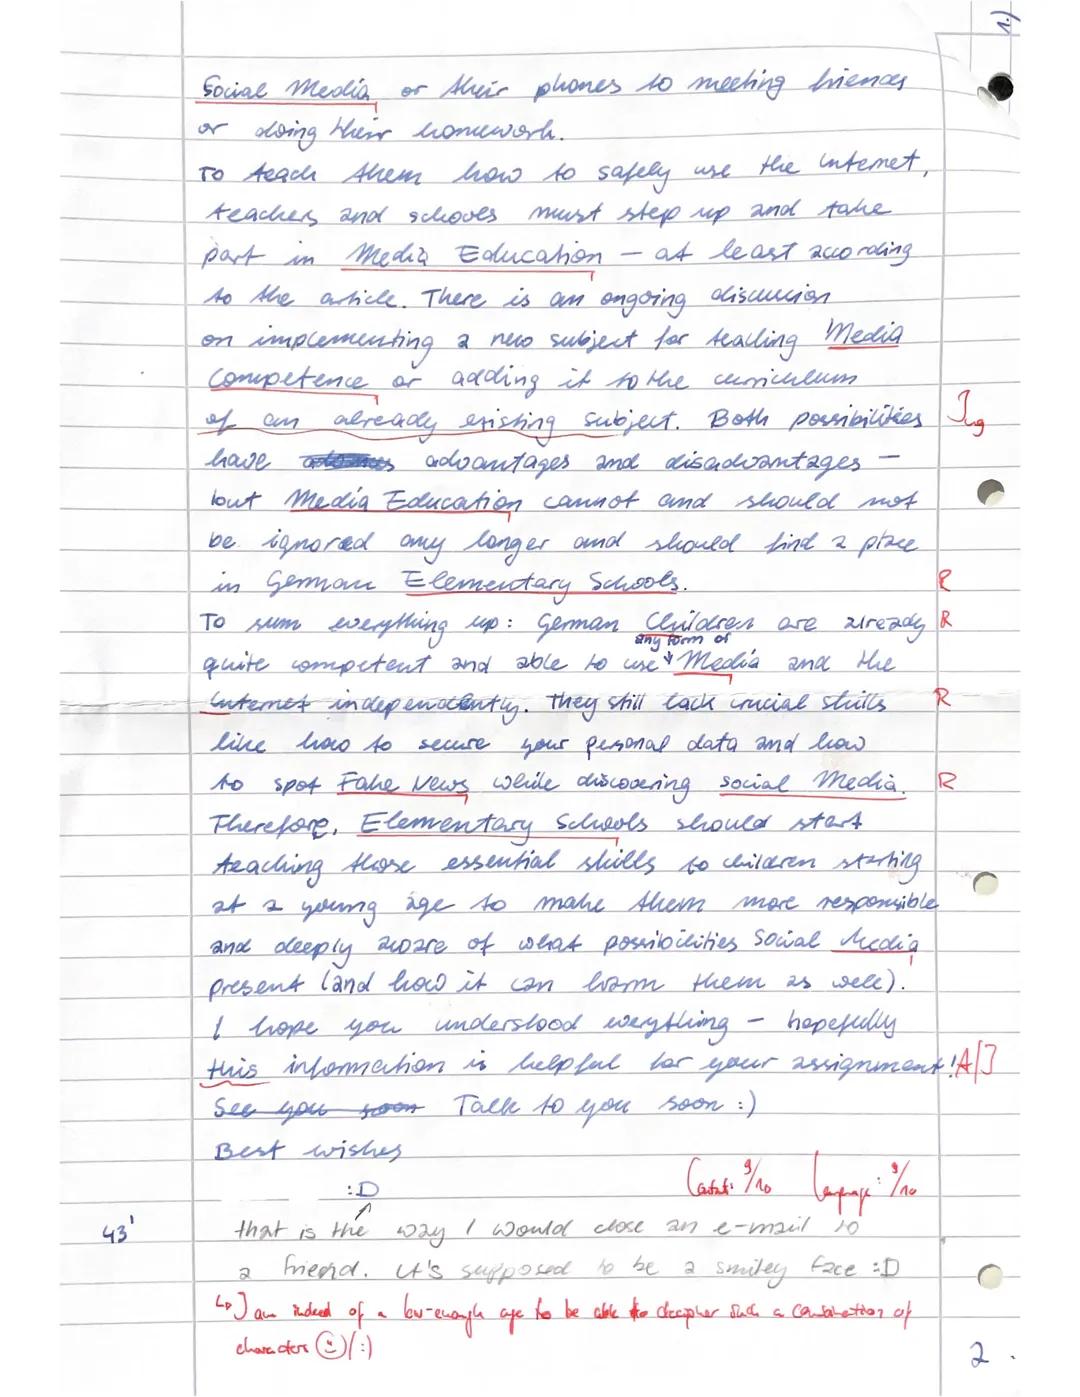 1.)
Social Media or their phones to meeting friends
or doing their homework.
To teach them how to safely use the internet,
teachers and schools must step up and take
part in Media Education – at least according
to the article. There is an ongoing discussion
on implementing a new subject for teaching Media
Competence or adding it to the curriculum
of an already existing subject. Both possibilities
have advantages and disadvantages –
but Media Education cannot and should not
be ignored any longer and should find a place
in German Elementary Schools. R
To sum everything up: German Children are already R
any form of
quite competent and able to use Media and the
Internet independently. They still lack crucial skills R
like how to secure your personal data and how
to spot Fake News while discovering social Media. R
Therefore, Elementary Schools should start
teaching those essential skills to children starting
at a young age to make them more responsible
and deeply aware of what possibilities Social Media
present (and how it can harm them as well).
I hope you understood everything – hopefully
this information is helpful for your assignment! A/J
See you soon Talk to you soon :)
Best wishes
Content: 9/10 Language: 9/10
:D
43' that is the way I would close an e-mail to
a friend. It's supposed to be a smiley face :D
I am indeed of a low-enough age to be able to decipher such a combination of
characters /:)
2